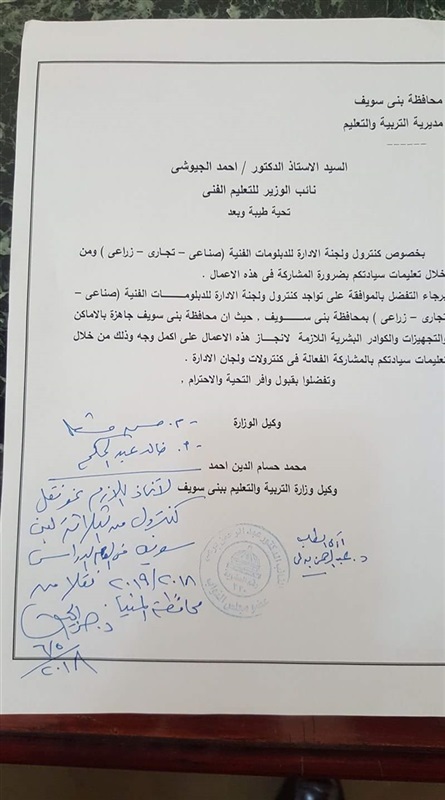 محافظة بنى سويف
مديرية التربية والتعليم
السيد الاستاذ الدكتور / احمد الجيوشى
نائب الوزير للتعليم الفنى
تحية طيبة وبعد
بخصوص كنترول ولجنة الادارة للدبلومات الفنية (صناعى – تجارى – زراعى ) ومن
خلال تعليمات سيادتكم بضرورة المشاركة فى هذه الاعمال .
برجاء التفضل بالموافقة على تواجد كنترول ولجنة الادارة للدبلومات الفنية (صناعى –
تجارى – زراعى ) بمحافظة بنى سويف . حيث ان محافظة بنى سويف جاهزة بالاماكن
والتجهيزات والكوادر البشرية اللازمة لانجاز هذه الاعمال على اكمل وجه وذلك من خلال
تعليمات سيادتكم بالمشاركة الفعالة فى كنترولات ولجان الادارة .
وتفضلوا بقبول وافر التحية والاحترام .
وكيل الوزارة
محمد حسام الدين احمد
وكيل وزارة التربية والتعليم ببنى سويف
أ. خالد عبد الحكم
لاتخاذ اللازم نحو نقل
كنترول من الثلاثة لبنى
سويف فى العام الدراسى
٢٠١٩/٢٠١٨ نقلا من
محافظة المنيا
٢٠١٨